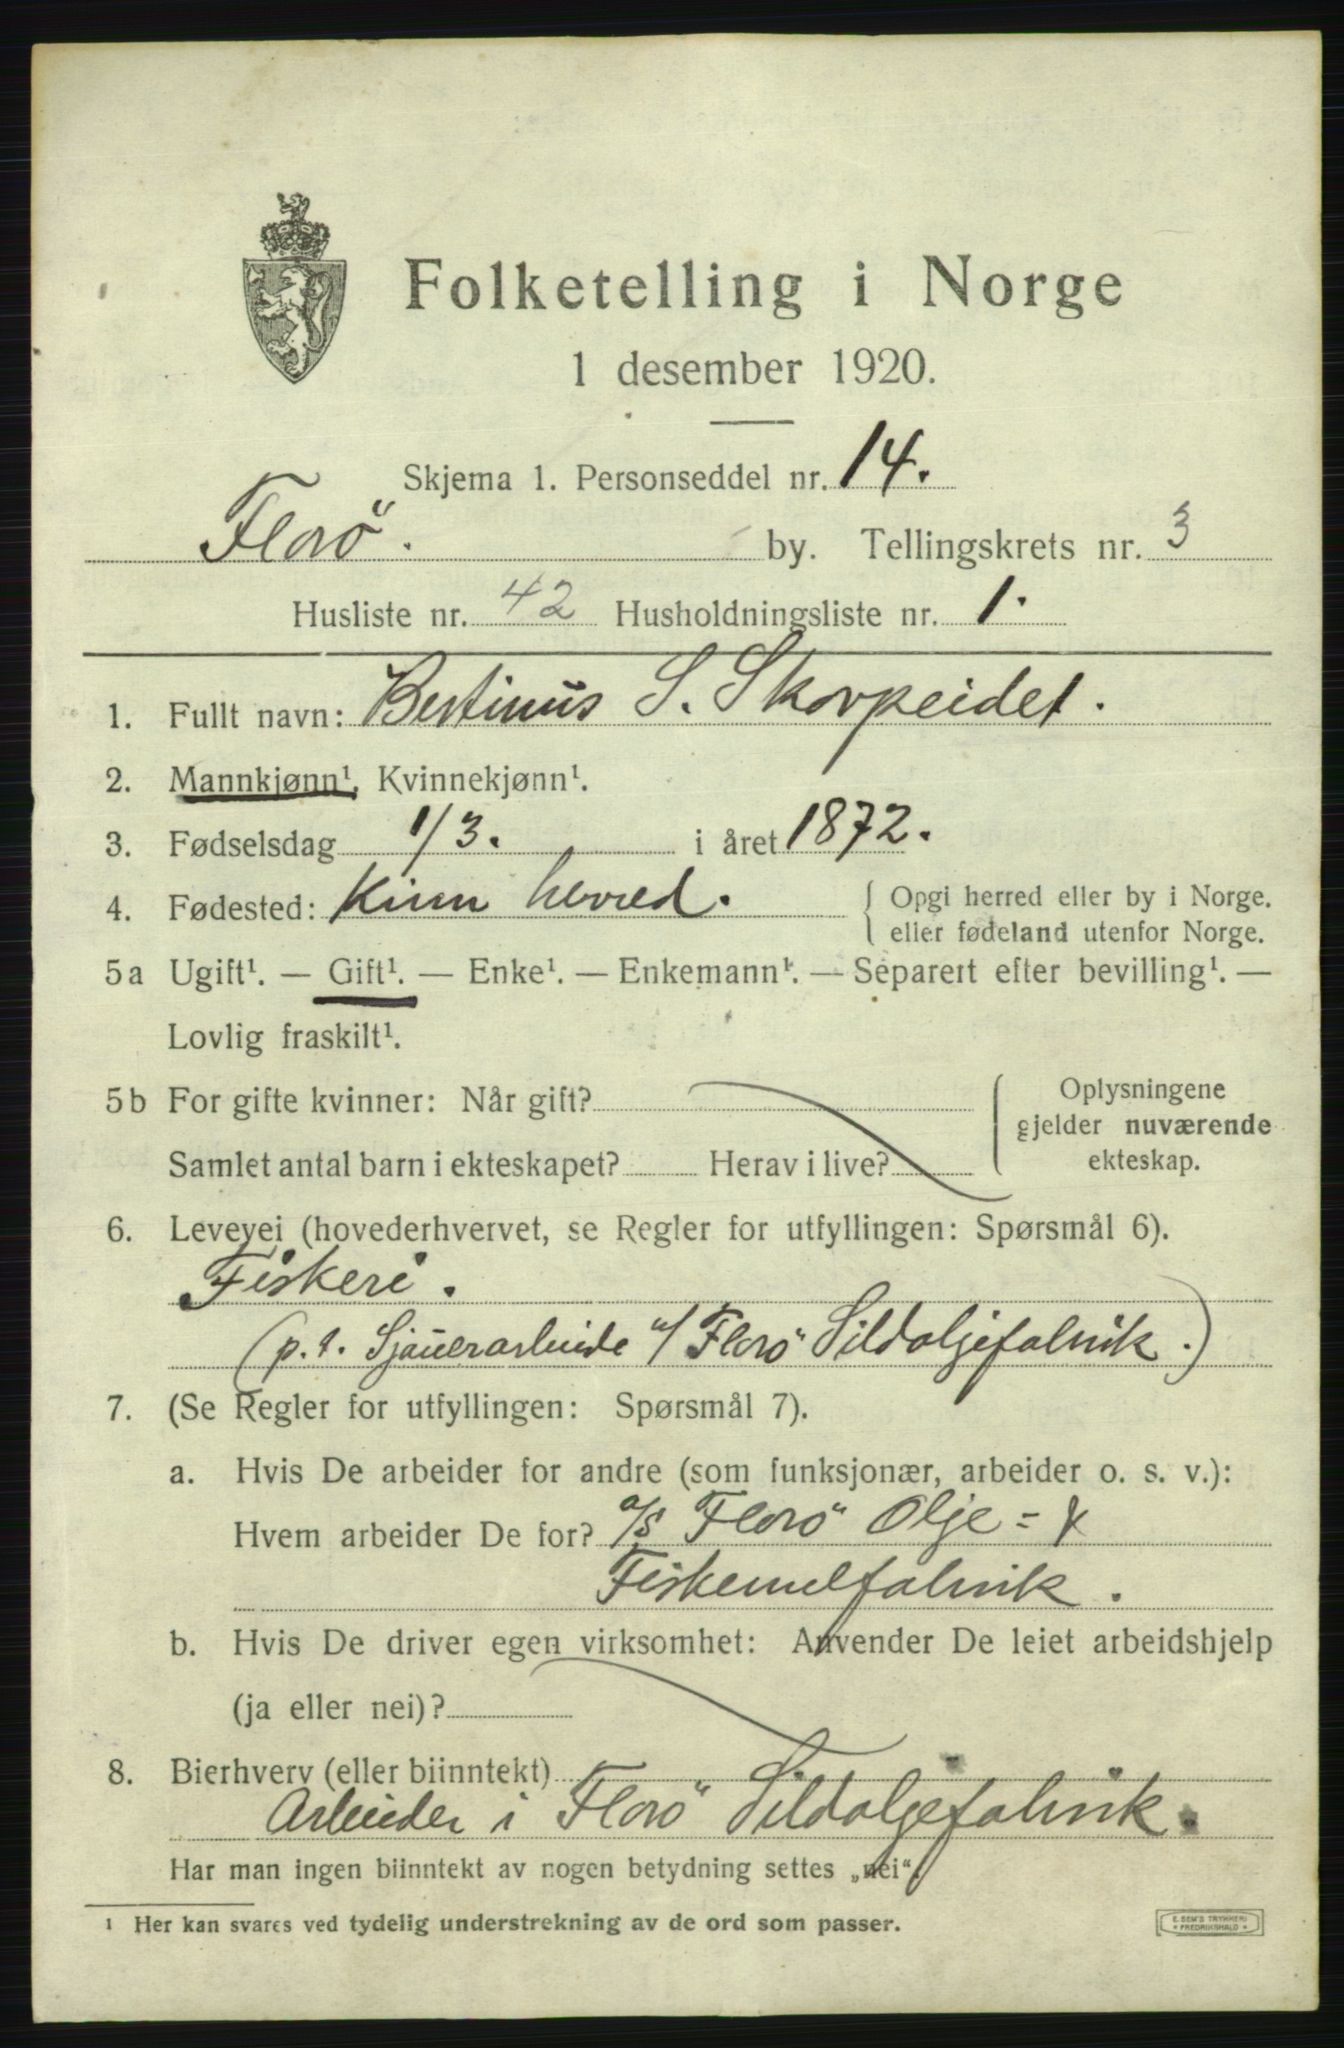 Folketelling i Norge
1 desember 1920.
Skjema 1. Personseddel nr. 14.
Florö. by. Tellingskrets nr. 3
Husliste nr. 42 Husholdningsliste nr. 1.
1. Fullt navn: Bertinus S. Skorpeidet.
2. Mannkjønn¹, Kvinnekjønn¹.
3. Fødselsdag 1/3. i året 1872.
4. Fødested: Kinn herred. { Opgi herred eller by i Norge.
eller fødeland utenfor Norge.
5a Ugift¹. — Gift¹. — Enke¹. — Enkemann¹. — Separert efter bevilling¹. —
Lovlig fraskilt¹.
5b For gifte kvinner: Når gift? Oplysningene
gjelder nuværende
Samlet antal barn i ekteskapet? Herav i live? ekteskap.
6. Levevei (hovederhvervet, se Regler for utfyllingen: Spørsmål 6).
Fiskeri.
(p.t. Sjauerarbeide v/ Florö Sildoljefabrik.)
7. (Se Regler for utfyllingen: Spørsmål 7).
a. Hvis De arbeider for andre (som funksjonær, arbeider o. s. v.):
Hvem arbeider De for? A/S Florö Olje= &
Fiskemelfabrik.
b. Hvis De driver egen virksomhet: Anvender De leiet arbeidshjelp
(ja eller nei)?
8. Bierhverv (eller biinntekt)
Arbeider i Florö Sildoljefabrik.
Har man ingen biinntekt av nogen betydning settes „nei“.
¹ Her kan svares ved tydelig understrekning av de ord som passer.
E. SEM'S TRYKKERI
* FREDRIKSHALD *